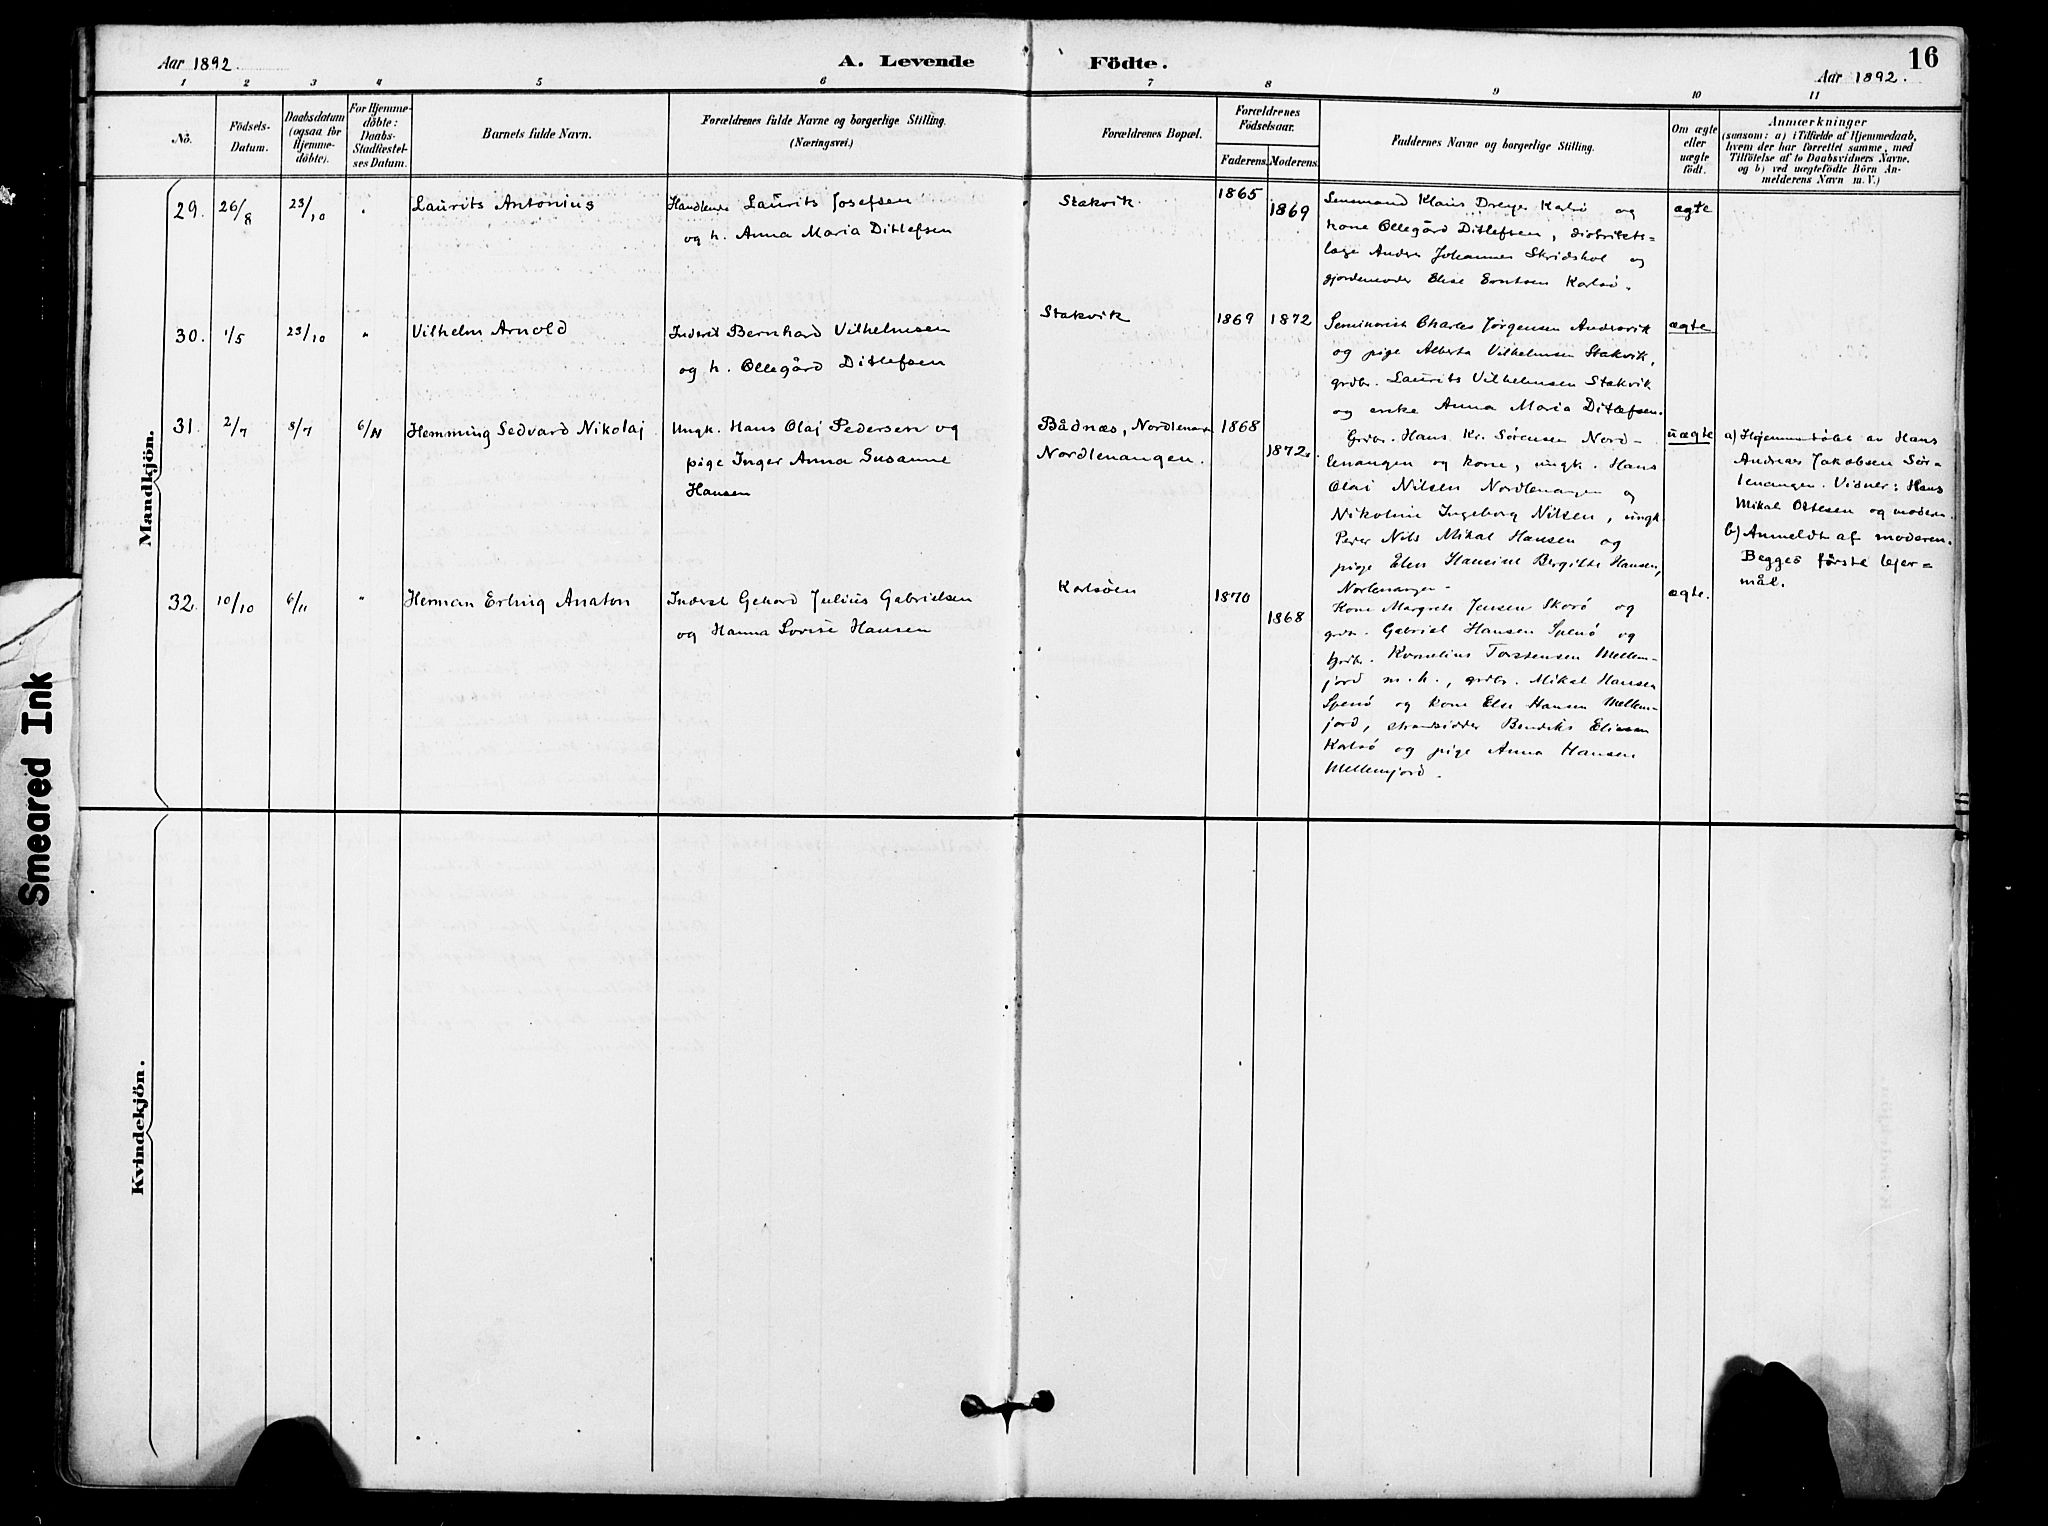 16
Aar 1892.
A. Levende Födte.
Aar 1892.
1 2 3 4 5 6 7 8 9 10 11
No.
Födsels-
Datum.
Daabsdatum
(ogsaa for
Hjemme-
döbte).
For Hjemme-
döbte:
Daabs-
Stadfæstel-
ses Datum.
Barnets fulde Navn.
Forældrenes fulde Navne og borgerlige Stilling.
(Næringsvei.)
Forældrenes Bopæl.
Forældrenes
Födselsaar.
Faderens. Moderens.
Faddernes Navne og borgerlige Stilling.
Om ægte
eller
uægte
födt.
Anmærkninger
(saasom: a) i Tilfælde af Hjemmedaab,
hvem der har forrettet samme, med
Tilföielse af to Daabsvidners Navne,
og b) ved uægtefödte Börn An-
melderens Navn m. V.)
Mandkjön.
29. 26/8 23/10 " Laurits Antonius
Handlende Laurits Josefsen
og h. Anna Maria Ditlefsen
Stakvik 1865 1869
Lensmand Klaus Dreyer Karlsö og
kone Ollegård Ditlefsen, distrikts=
læge Anders Johannes Skridshol og
gjordemoder Elise Karlsö.
ægte
30. 1/5 23/10 " Vilhelm Arnold
Inderst Bernhard Vilhelmsen
og h. Ollegård Ditlefsen
Stakvik 1869 1872
Seminarist Charles Jørgensen
og pige Alberta Vilhelmsen Stakvik,
grdbr. Laurits Vilhelmsen Stakvik
og enke Anna Maria Ditlefsen.
ægte
31. 2/7 8/7 6/11 Hemming Sedvard Nikolaj
Ungk. Hans Olaj Pedersen og
pige Inger Anna Susanne
Hansen
Bådnæs, Nordlenan
Nordlenangen.
1868 1872.
Grdbr. Hans Kr. Sørensen Nord-
lenangen og kone, ungk. Hans
Olai Nilsen Nordlenangen og
Nikoline Ingeborg Nilsen, ungk.
Peder Nils Mikal Hansen og
pige Elen Hansine Bergitte Hansen,
Norlenangen.
uægte
a) Hjemmedøbt av Hans
Andreas Jakobsen Sør-
lenangen. Vidner: Hans
Mikal Ottesen og modern.
b) Anmeldt af moderen.
Begges første lejer=
mål.
32. 10/10 6/11 " Herman Erling Anaton
Inderst Gehard Julius Gabrielsen
og Hanna Lovise Hansen
Karlsöen 1870 1868
Kone Margrete Jensen Skorö og
grdbr. Gabriel Hansen Spenö og
grdbr. Kornelius Torstensen Mellem-
jord m. h., grdbr. Mikal Hansen
Spenö og kone Else Hansen Mellem-
jord, strandsidder Bendiks Eliassen
Karlsö og pige Anna Hansen
Mellemjord.
ægte.
Kvindekjön.
Smeared Ink